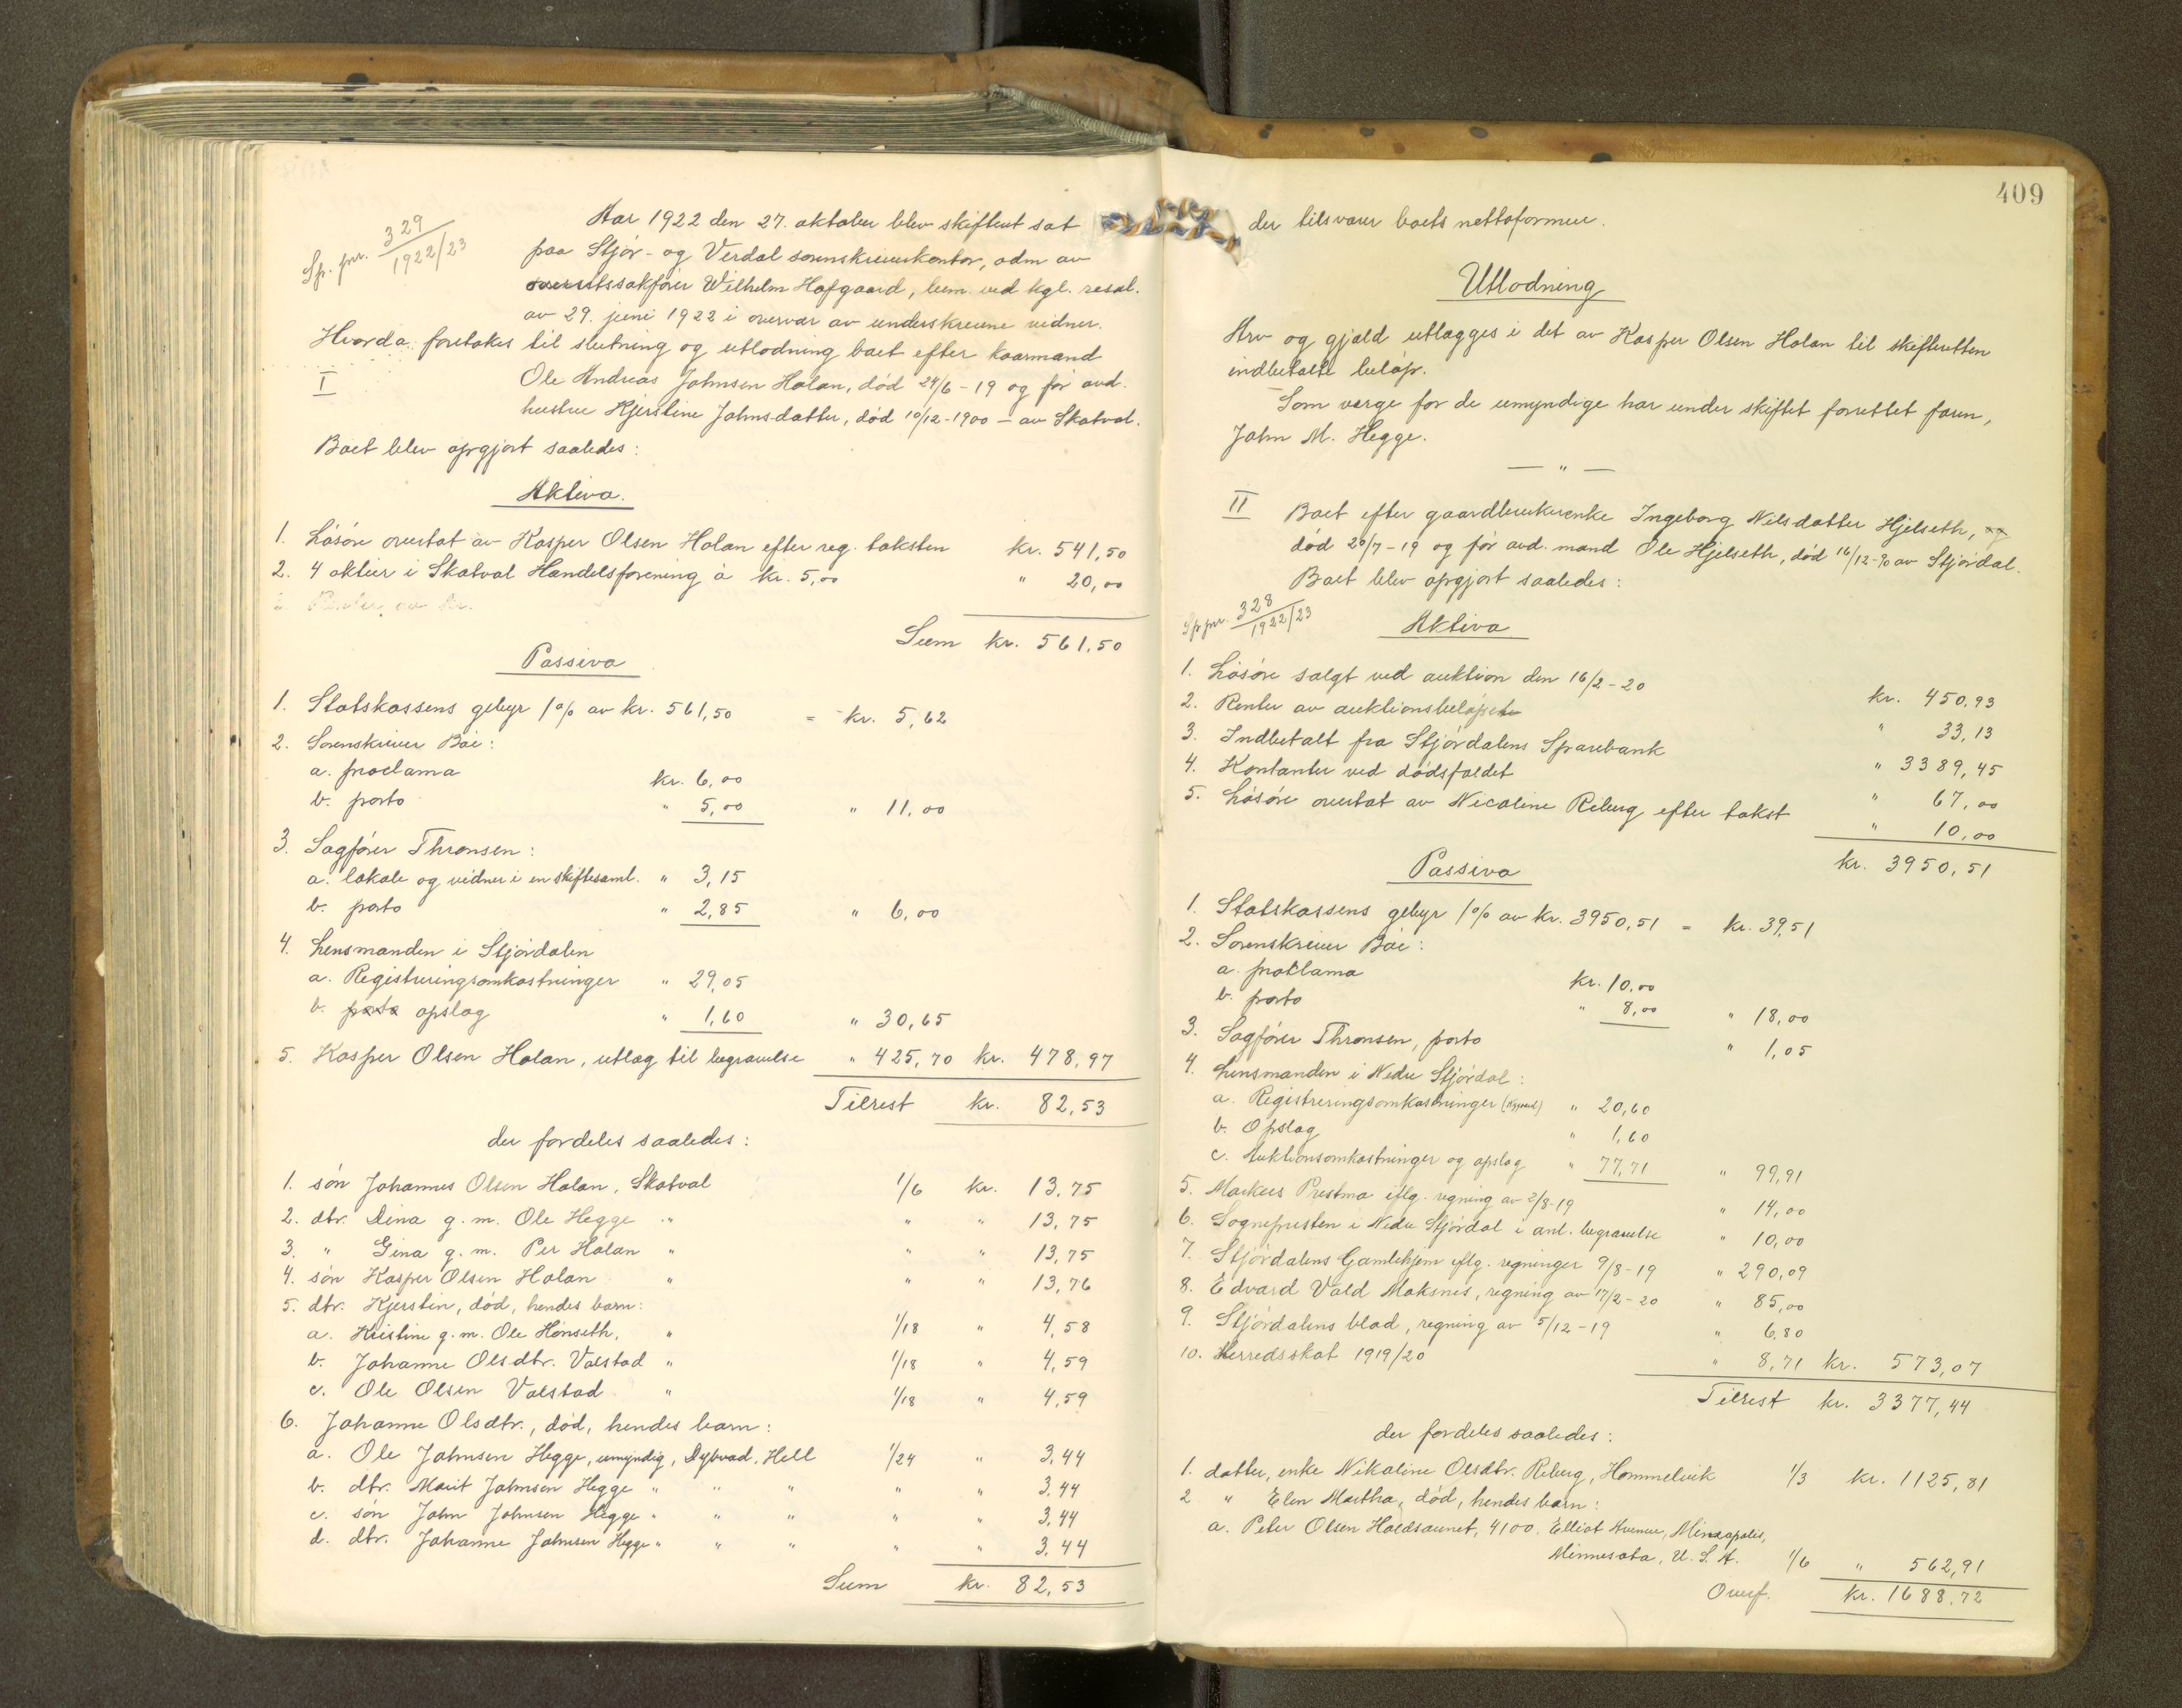 Sp. pnr. 329
1922/23
Aar 1922 den 27. oktober blev skifteret sat
paa Stjør- og Verdal sorenskriverkontor, adm av
overretssakfører Wilhelm Hofgaard, bem. ved kgl. resol.
av 29. juni 1922 i overvær av underskrevne vidner.
Hvorda foretokes til slutning og utlodning boet efter kaarmand
I
Ole Andreas Johnsen Holan, død 24/6-19 og før avd.
hustru Kjerstine Johnsdatter, død 10/12-1900 – av Skatval.
Boet blev opgjort saaledes:
Aktiva.
1. Løsøre overtat av Kasper Olsen Holan efter reg. taksten kr. 541,50
2. 4 aktier i Skatval Handelsforening à kr. 5,00 " 20,00
3. Renter av kr.
Sum kr. 561,50
Passiva
1. Statskassens gebyr 1% av kr. 561,50 = kr. 5,62
2. Sorenskriver Bøe:
a. proclama kr. 6,00
b. porto " 5,00 " 11,00
3. Sagfører Thronsen:
a. lokale og vidner i en skiftesaml. " 3,15
b. porto " 2,85 " 6,00
4. Lensmanden i Stjørdalen
a. Registreringsomkostninger " 29,05
b. porto opslag " 1,60 " 30,65
5. Kasper Olsen Holan, utlæg til begravelse " 425,70 kr. 478,97
Tilrest kr. 82,53
der fordeles saaledes:
1. søn Johannes Olsen Holan, Skatval 1/6 kr. 13,75
2. dtr. Dina g.m. Ole Hegge " " " 13,75
3. " Gina g.m. Per Holan " " " 13,75
4. søn Kasper Olsen Holan " " " 13,76
5. dtr. Kjerstin, død, hendes barn:
a. Kristine g.m. Ole Hønseth, " 1/18 " 4,58
b. Johanne Olsdtr. Valstad " 1/18 " 4,59
c. Ole Olsen Valstad " 1/18 " 4,59
6. Johanne Olsdtr., død, hendes barn:
a. Ole Johnsen Hegge, umyndig, Dybvad, Hell 1/24 " 3,44
b. dtr. Marit Johnsen Hegge " " " " " 3,44
c. søn John Johnsen Hegge " " " " " 3,44
d. dtr. Johanne Johnsen Hegge " " " " " 3,44
Sum kr. 82,53
409
der tilsvarer boets nettoformue.
Utlodning
Arv og gjæld utlægges i det av Kasper Olsen Holan til skifteretten
indbetalte beløp.
Som verge for de umyndige har under skiftet forrettet faren,
John M. Hegge.
— " —
II Boet efter gaardbrukerenke Ingeborg Nilsdatter Hjelseth, og
død 20/7-19 og før avd. mand Ole Hjelseth, død 16/12-90 av Stjørdal.
Boet blev opgjort saaledes:
Sp pnr. 328
1922/23
Aktiva
1. Løsøre solgt ved auktion den 16/2-20 kr. 450,93
2. Renter av auktionsbeløpet " 33,13
3. Indbetalt fra Stjørdalens Sparebank " 3389,45
4. Kontanter ved dødsfaldet " 67,00
5. Løsøre overtat av Nicoline Reberg efter takst " 10,00
kr. 3950,51
Passiva
1. Statskassens gebyr 1% av kr. 3950,51 = kr. 39,51
2. Sorenskriver Bøe:
a. proklama kr. 10,00
b. porto " 8,00 " 18,00
3. Sagfører Thronsen, porto " 1,05
4. Lensmanden i Nedre Stjørdal:
a. Registreringsomkostninger " 20,60
b. Opslag " 1,60
c. Auktionsomkostninger og opslag " 77,71 " 99,91
5. Markus Prestmo iflg. regning av 2/8-19 " 14,00
6. Sognepresten i Nedre Stjørdal i anl. begravelse " 10,00
7. Stjørdalens Gamlehjem iflg. regninger 9/8-19 " 290,09
8. Edvard Vald Moksnes, regning av 17/2-20 " 85,00
9. Stjørdalens blad, regning av 5/12-19 " 6,80
10. Herredsskat 1919/20 " 8,71 kr. 573,07
Tilrest kr. 3377,44
der fordeles saaledes:
1. datter, enke Nikoline Olsdtr. Reberg, Hommelvik 1/3 kr. 1125,81
2 " Elen Martha, død, hendes barn:
a. Peter Olsen Haldsaunet, 4100. Elliot Avenue, Mineapolis,
Minnesota, U.S.A. 1/6 " 562,91
Overf. kr. 1688,72